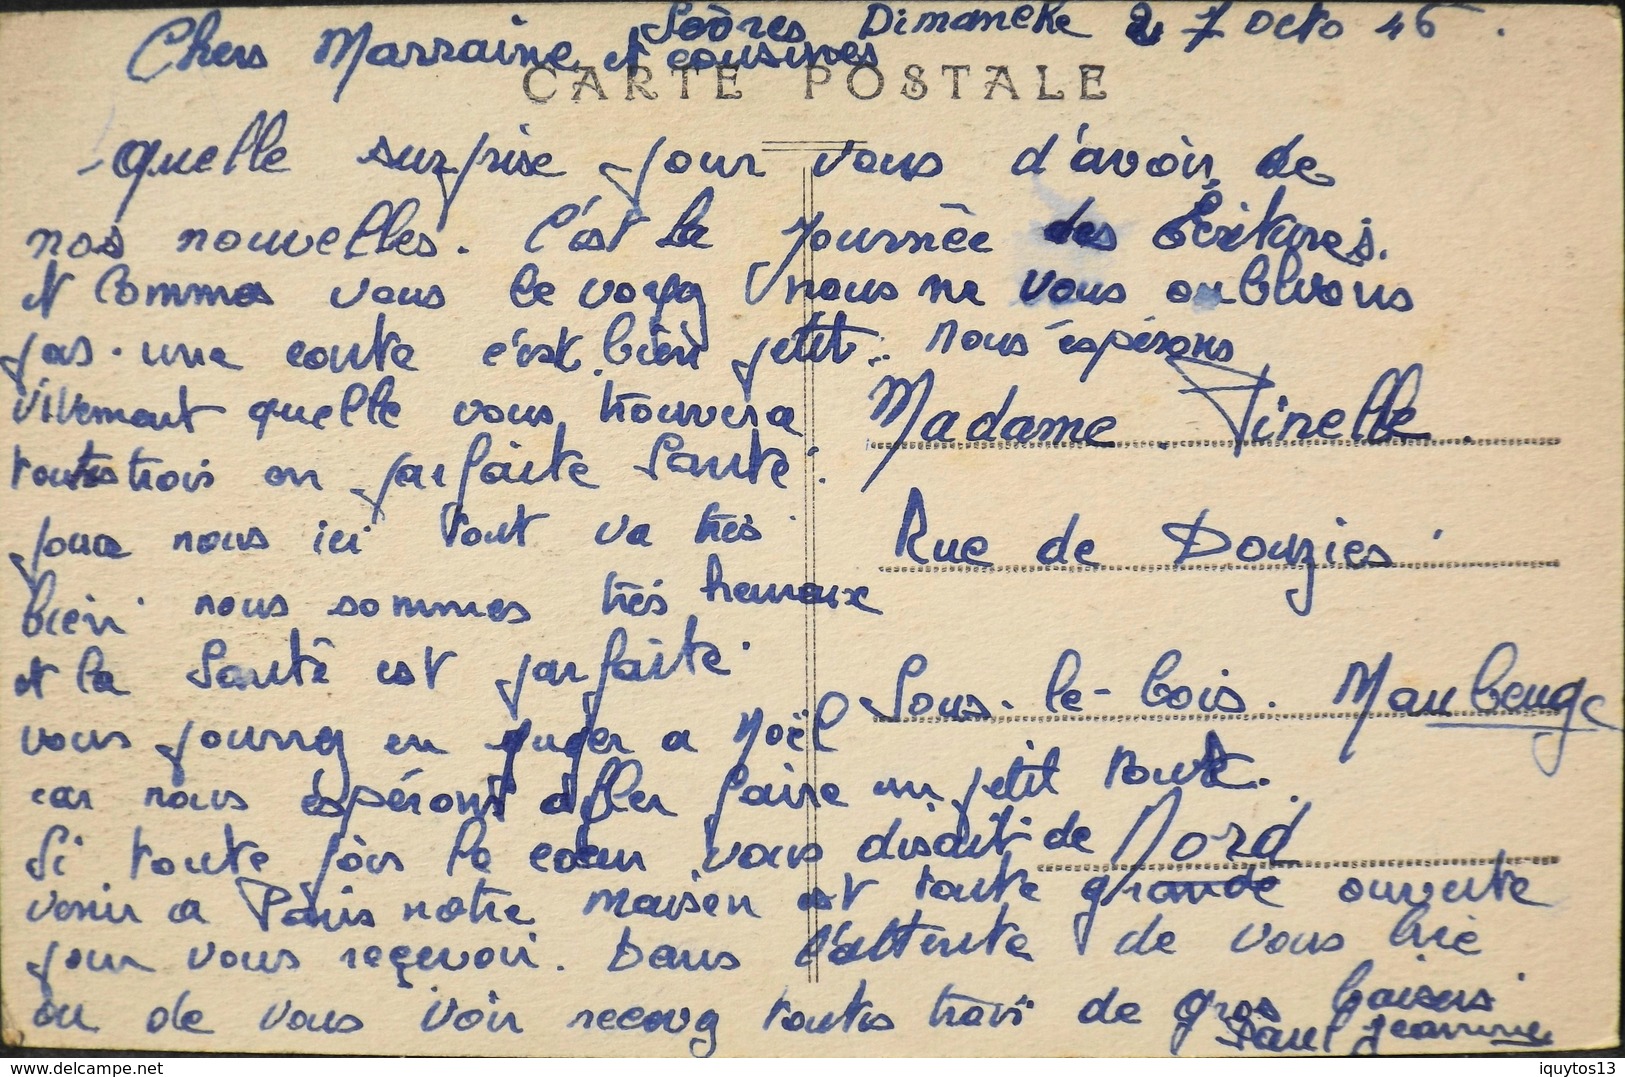 Sèvres Dimaneke 27 octo 46.
Chers Marraine et cousines
CARTE POSTALE
quelle surprise pour vous d'avoir de
nos nouvelles. C'est la journée des Écritures.
et commes vous le voyez nous ne vous oublions
pas. une coute c'est bien petit. nous éspérons
vivement quelle vous trouvera
toutes trois en parfaite Santé.
pour nous ici tout va très
bien nous sommes très heureux
et la Santé est parfaite.
vous pourrez en juger a Noël
car nous éspérons aller faire un petit tour.
Si toute fois le coeur vous disait de
venir a Paris notre maison est toute grande ouverte
pour vous reçevoir. Dans l'attente de vous lire
ou de vous voir recevez toutes trois de gros baisers
Paul Jeannine
Madame Pinelle.
Rue de Douzies
Sous-le-bois. Maubeuge
Nord
iquytos13